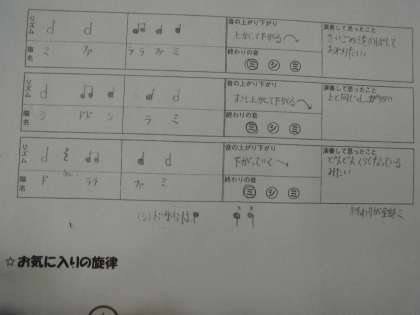 リズム
階名
ミ ファ ララファ ミ
音の上がり下がり
上がって下がる
終わりの音
ミ シ ミ
演奏して思ったこと
さいごの音をのばして
おわりたい
リズム
階名
シ ドド シ ラ ミ
音の上がり下がり
すこし上がって下がる
終わりの音
ミ シ ミ
演奏して思ったこと
上と同じ
リズム
階名
ド ララ ファ ミ
音の上がり下がり
下がっていく
終わりの音
ミ シ ミ
演奏して思ったこと
どんどんくらくなっている
みたい
☆お気に入りの旋律